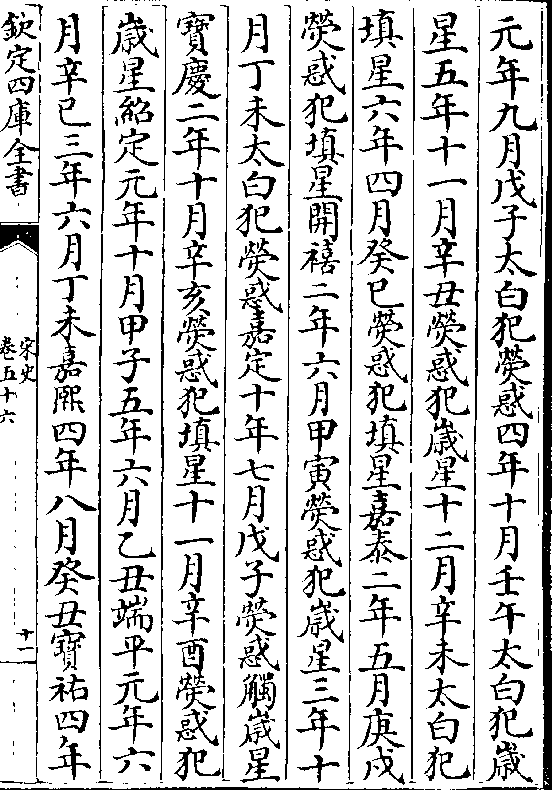 元年九月戊子太白犯熒惑四年十月壬午太白犯嵗
星五年十一月辛丑熒惑犯嵗星十二月辛未太白犯
填星六年四月癸巳熒惑犯填星嘉泰二年五月庚戍
熒惑犯填星開禧二年六月甲寅熒惑犯嵗星三年十
月丁未太白犯熒惑嘉定十年七月戊子熒惑觸嵗星
寳慶二年十月辛亥熒惑犯填星十一月辛酉熒惑犯
嵗星紹定元年十月甲子五年六月乙丑端平元年六
月辛巳三年六月丁未嘉熙四年八月癸丑寳祐四年
欽定四庫全書
宋史
卷五十六
十一